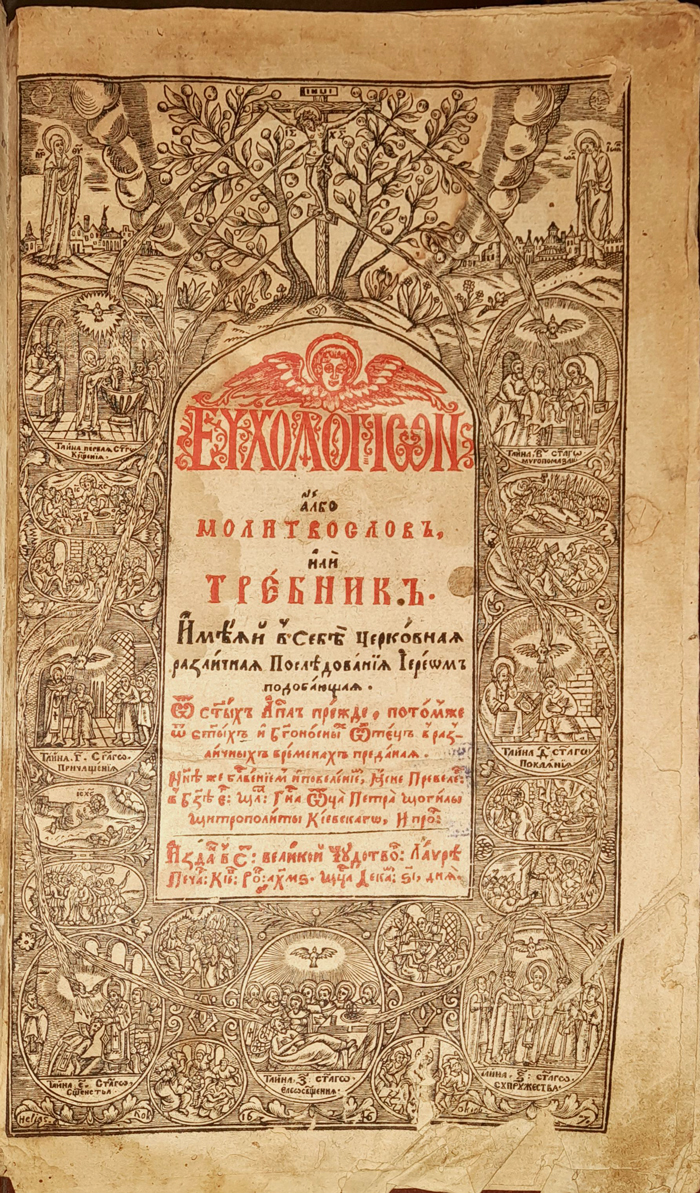 ІНЦІ
ІС ХС
ЕУХОЛОГІѠН
албо
МОЛИТВОСЛОВЪ,
или
ТРЕ́БНИКЪ.
Имѣѧй в себѣ церко́внаѧ
разли́чнаѧ Послѣ́дованїѧ Іере́ѡмъ
подоба́ющаѧ.
Ѿ ст҃ы́хъ Ап҃лъ пре́жде, пото́мже
ѿ ст҃ы́хъ и бг҃оно́сны Ѿте́цъ в раз-
ли́чныхъ временахъ пре́данаѧ.
Нн҃ѣ же бл҃вениемъ и повелѣнїе,
в Бз҃ѣ Е: Мл: Г҃на Ѿц҃а Петра Могилы
Митрополи́ты Кі́евскагѡ, И про:
Изда в С: вели́кой Чу́дотво: Ла́урѣ
Печа: Кіе: Ро: ахмѕ. Мц҃а Дека: ѕі, днѧ.
ТАЙНА ПЕРВАѦ СТ҃Г
КР҃ЩЕНІѦ.
ТАЙНА .В҃. СТ҃АГѠ
МУРОПОМАЗАН
ТАЙНА .Г҃. СТ҃АГѠ
ПРИЧАЩЕНІѦ
ТАЙНА .Д҃. СТ҃АГѠ
ПОКАѦНІѦ
ІС ХС
ТАЙНА .Е҃. СТ҃АГѠ
СЩ҃ЕНСТВА
ТАЙНА .З҃. СТ҃АГѠ
ЕЛЕОСЩ҃ЕНІѦ
ТАЙНА .Ѕ҃. СТ҃АГѠ
СУПРУЖЕСТВА
16 46